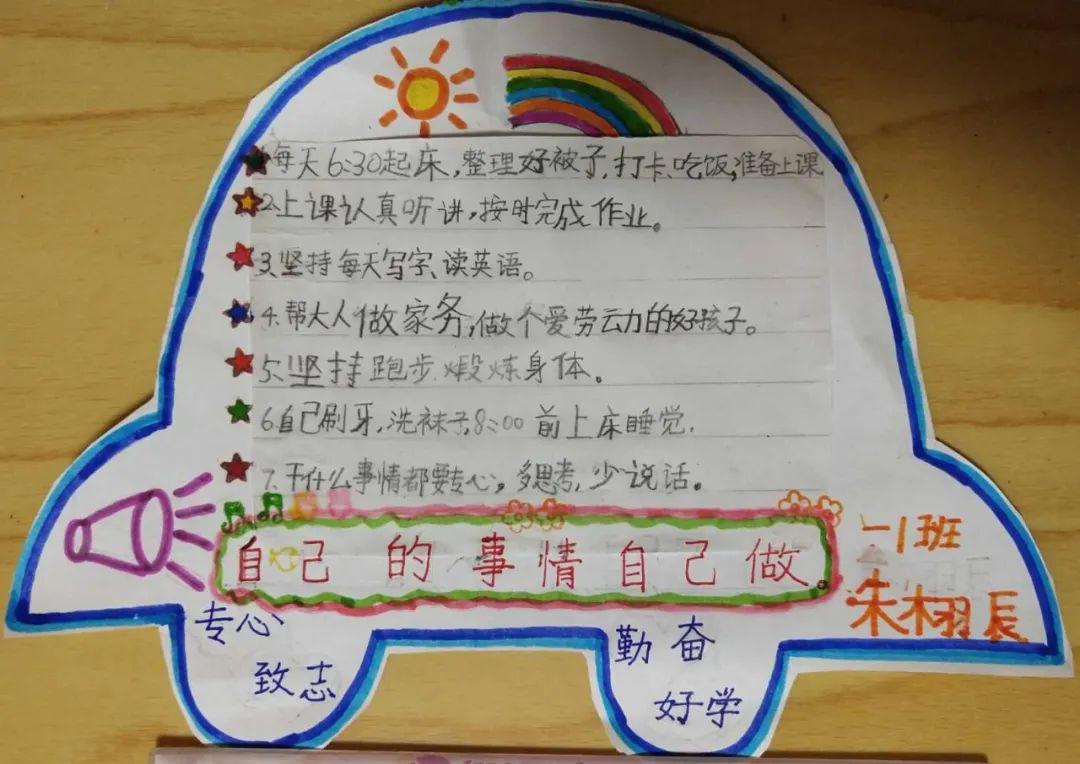 每天6:30起床,整理好被子,打卡、吃饭,准备上课
2.上课认真听讲,按时完成作业。
3.坚持每天写字、读英语。
4.帮大人做家务,做个爱劳动力的好孩子。
5.坚持跑步、煅炼身体。
6.自己刷牙,洗袜子,8:00前上床睡觉.
7.干什么事情都要专心。多思考,少说话。
自己的事情自己做.
一1班
朱栩辰
专心
致志
勤奋
好学